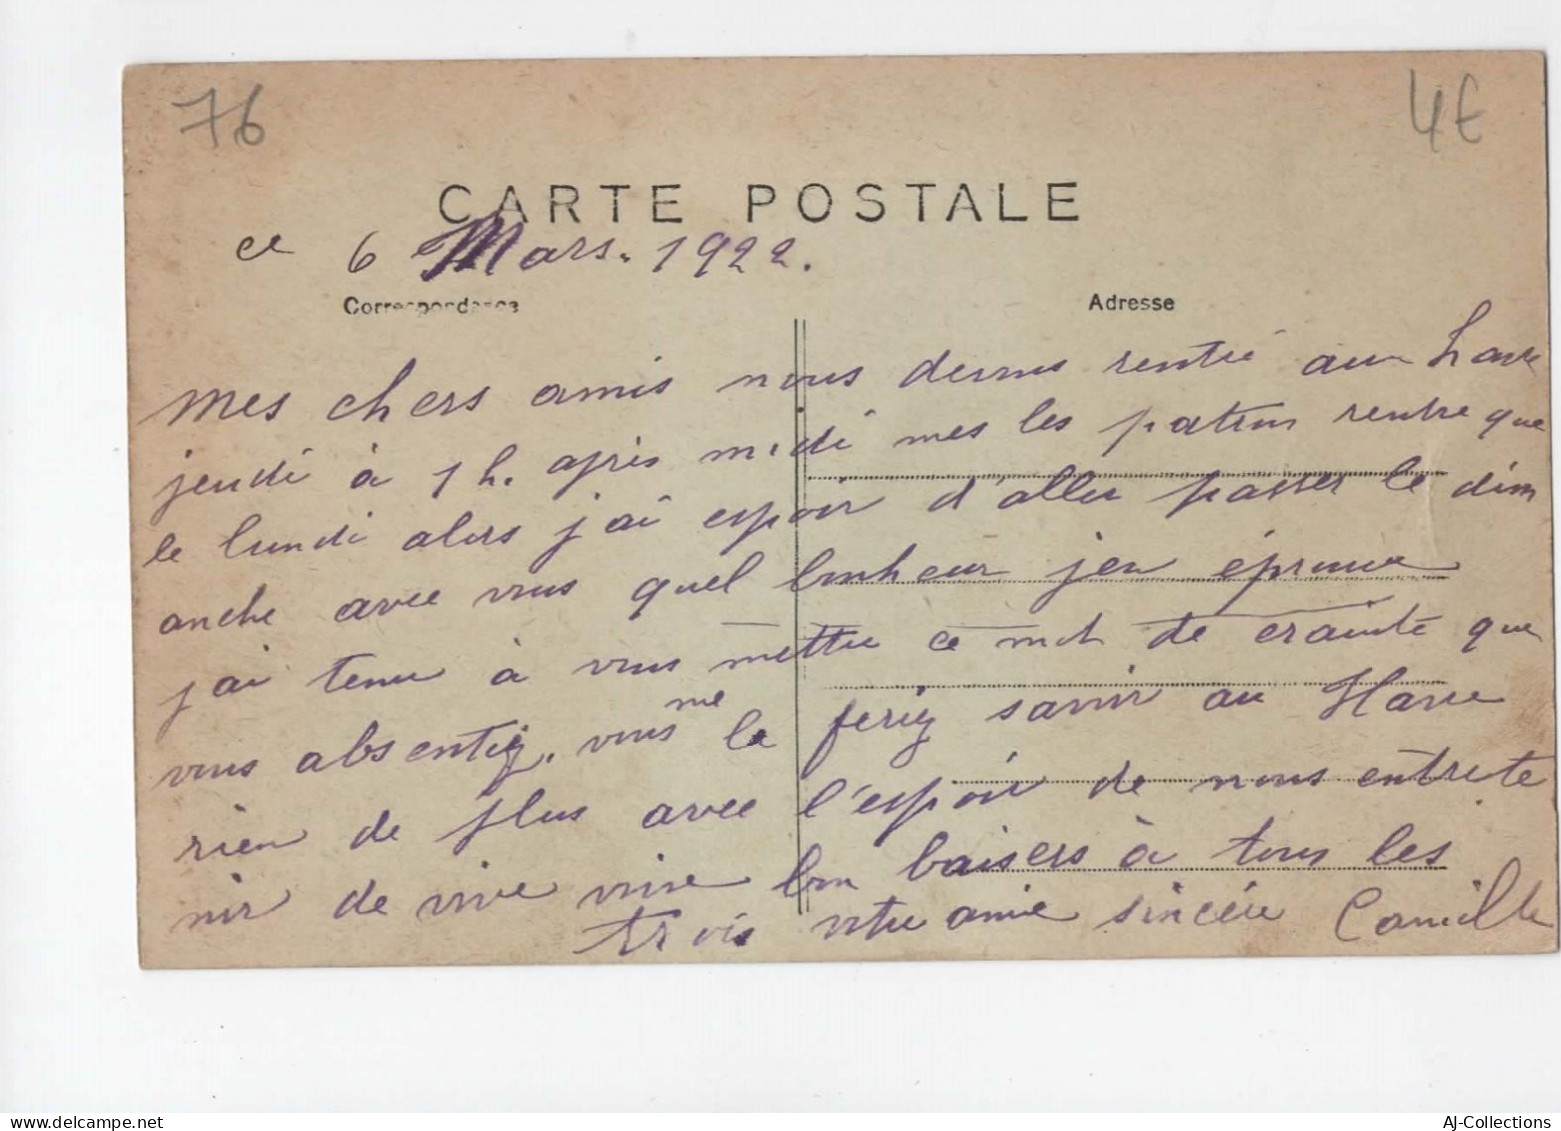 76
4€
CARTE POSTALE
ce 6 Mars. 1922.
Correspondance
Adresse
mes chers amis nous devons rentré au havre
jeudi à 1 h. après midi mes les patron rentre que
le lundi alors j'ai espoir d'aller passer le dim
anche avec vous quel bonheur jen éprouve
j'ai tenu à vous mettre ce mot de crainte que
vous absentiez. vous me le feriez savoir au Havre
rien de plus avec l'espoir de nous entrete
nir de vive voixe bon baisers à tous les
trois votre amie sincère Camille
AJ-Collections